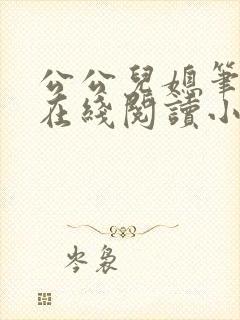 公公兒媳筆
在綫閱讀小
岑裊